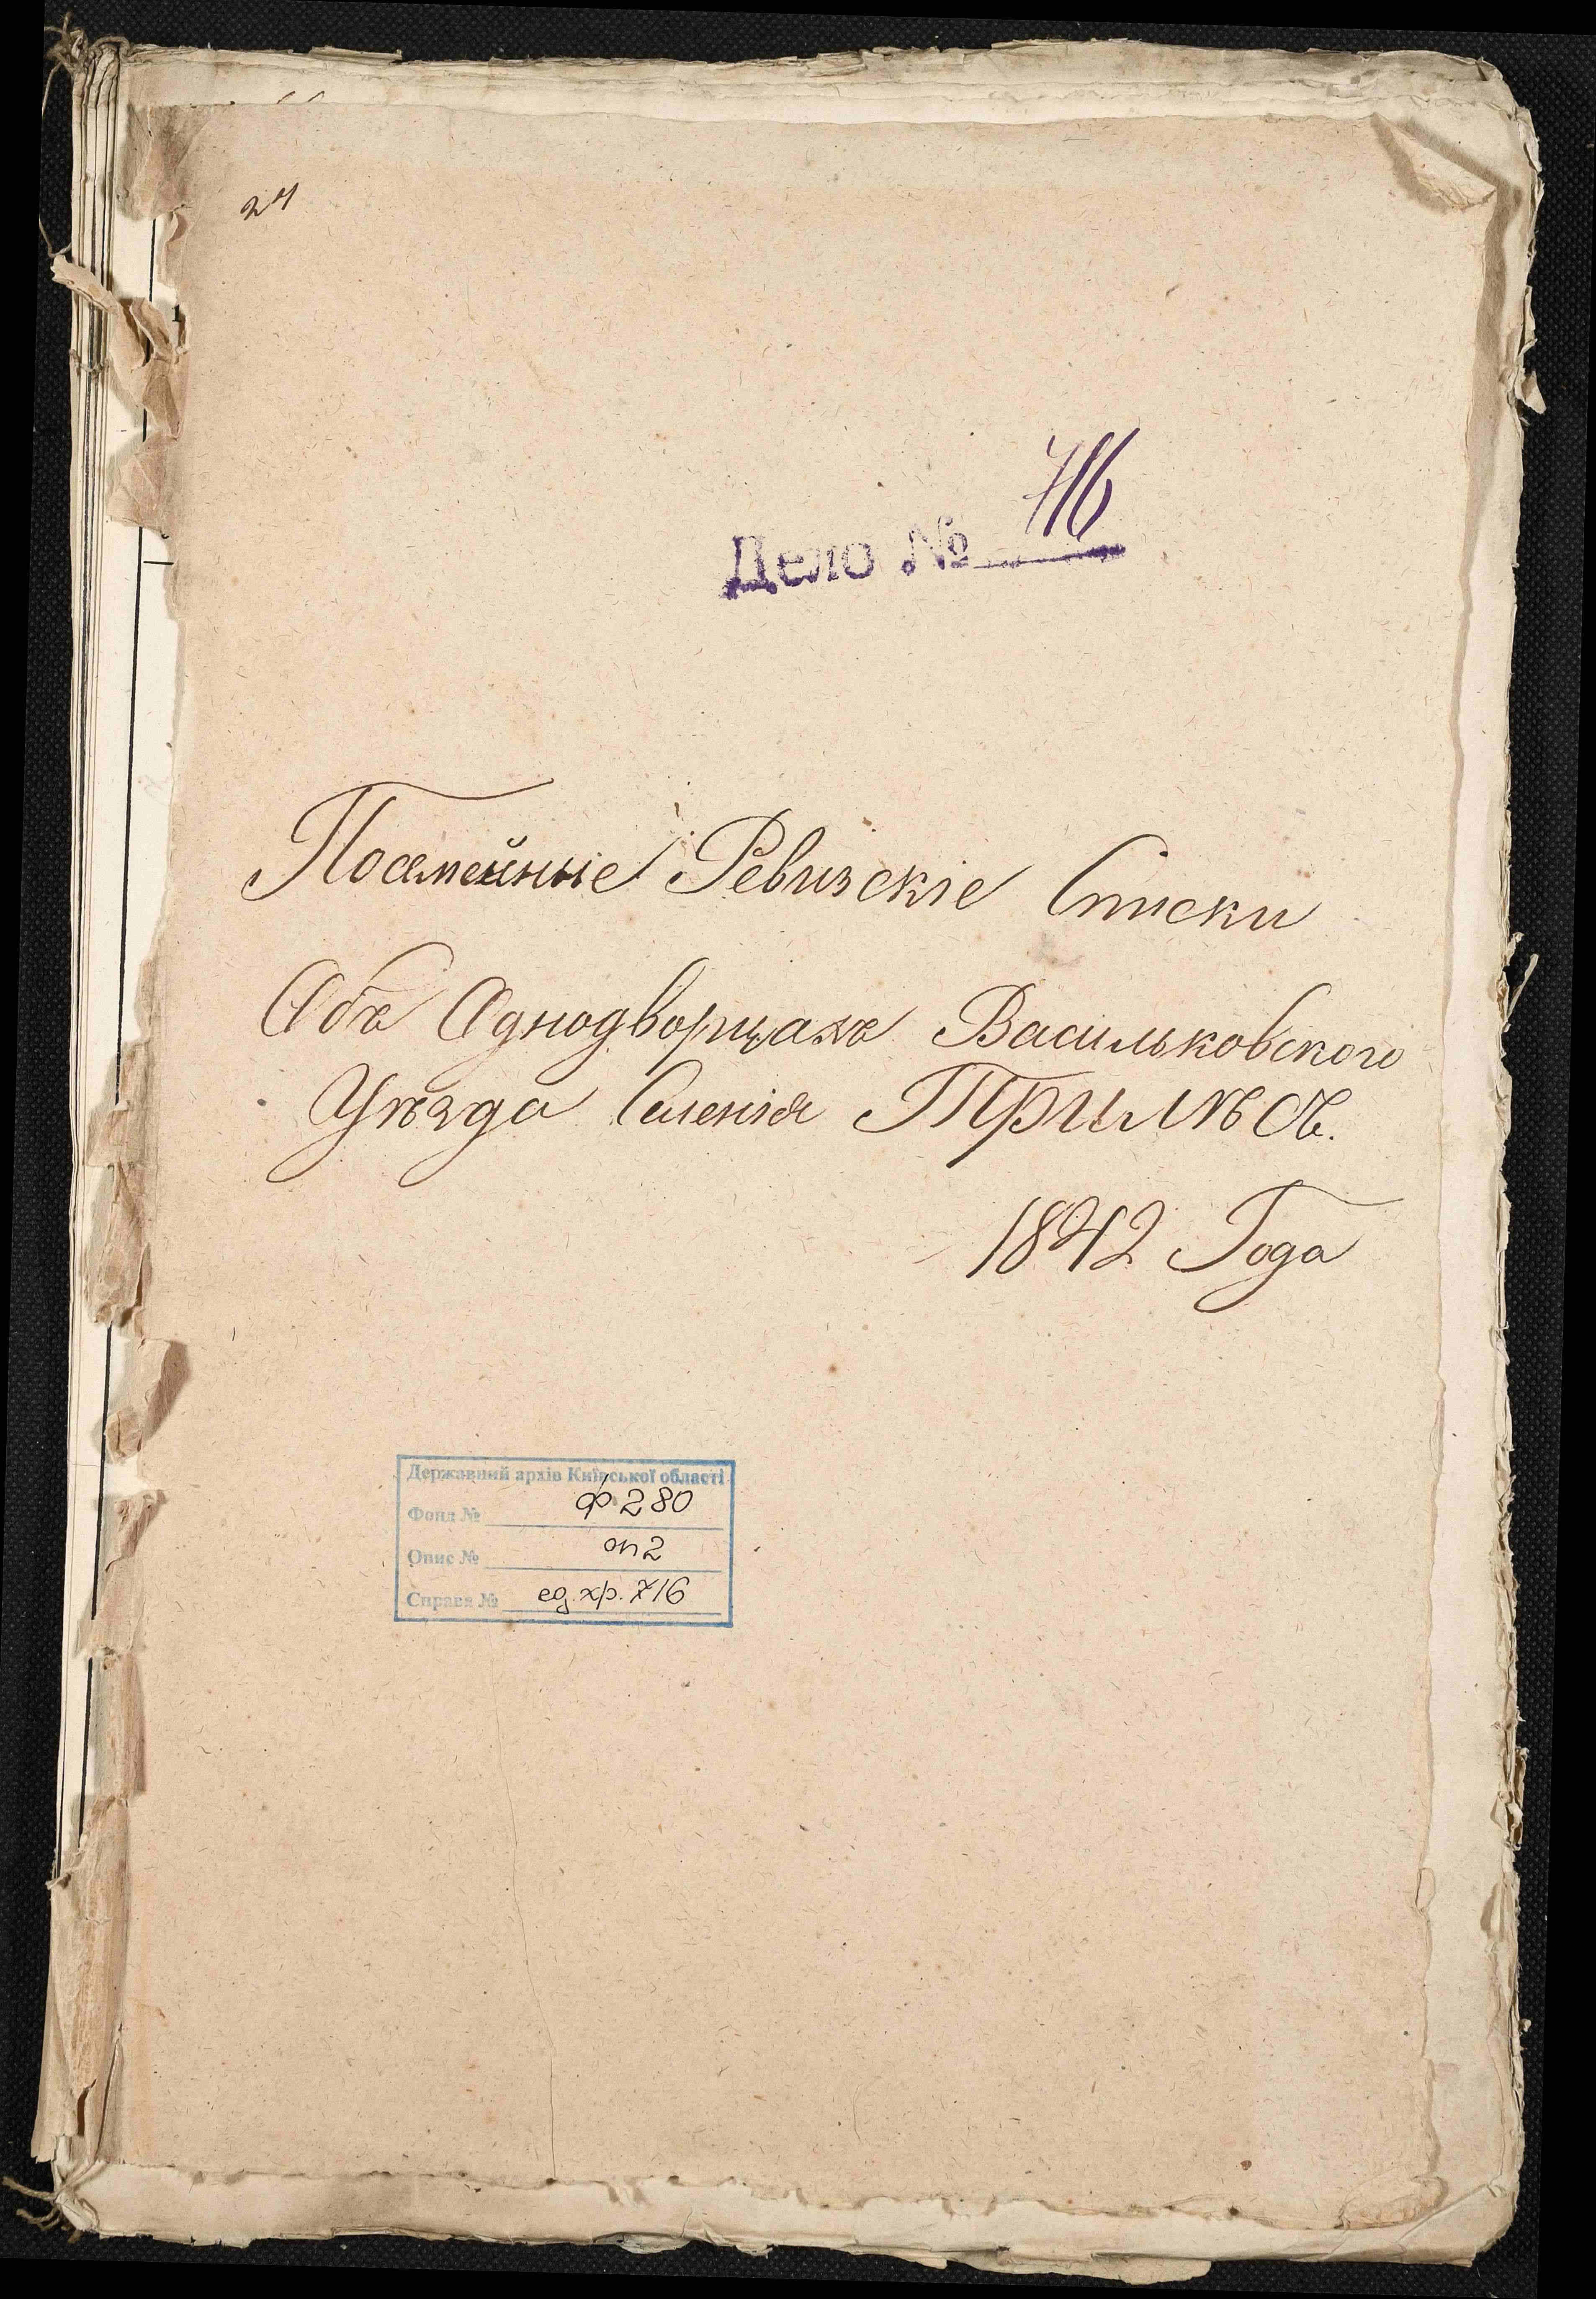 24
Дело № 716
Посемейные Ревизскіе Списки
Объ Однодворцахъ Васильковского
Уѣзда Селенія Трилѣсъ.
1842 Года
Державний архів Київської області
Фонд № ф 280
Опис № оп 2
Справа № ед. хр. 716